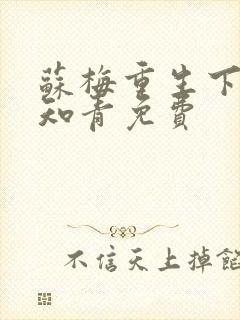 蘇梅重生下
知青免費
不信天上掉餡